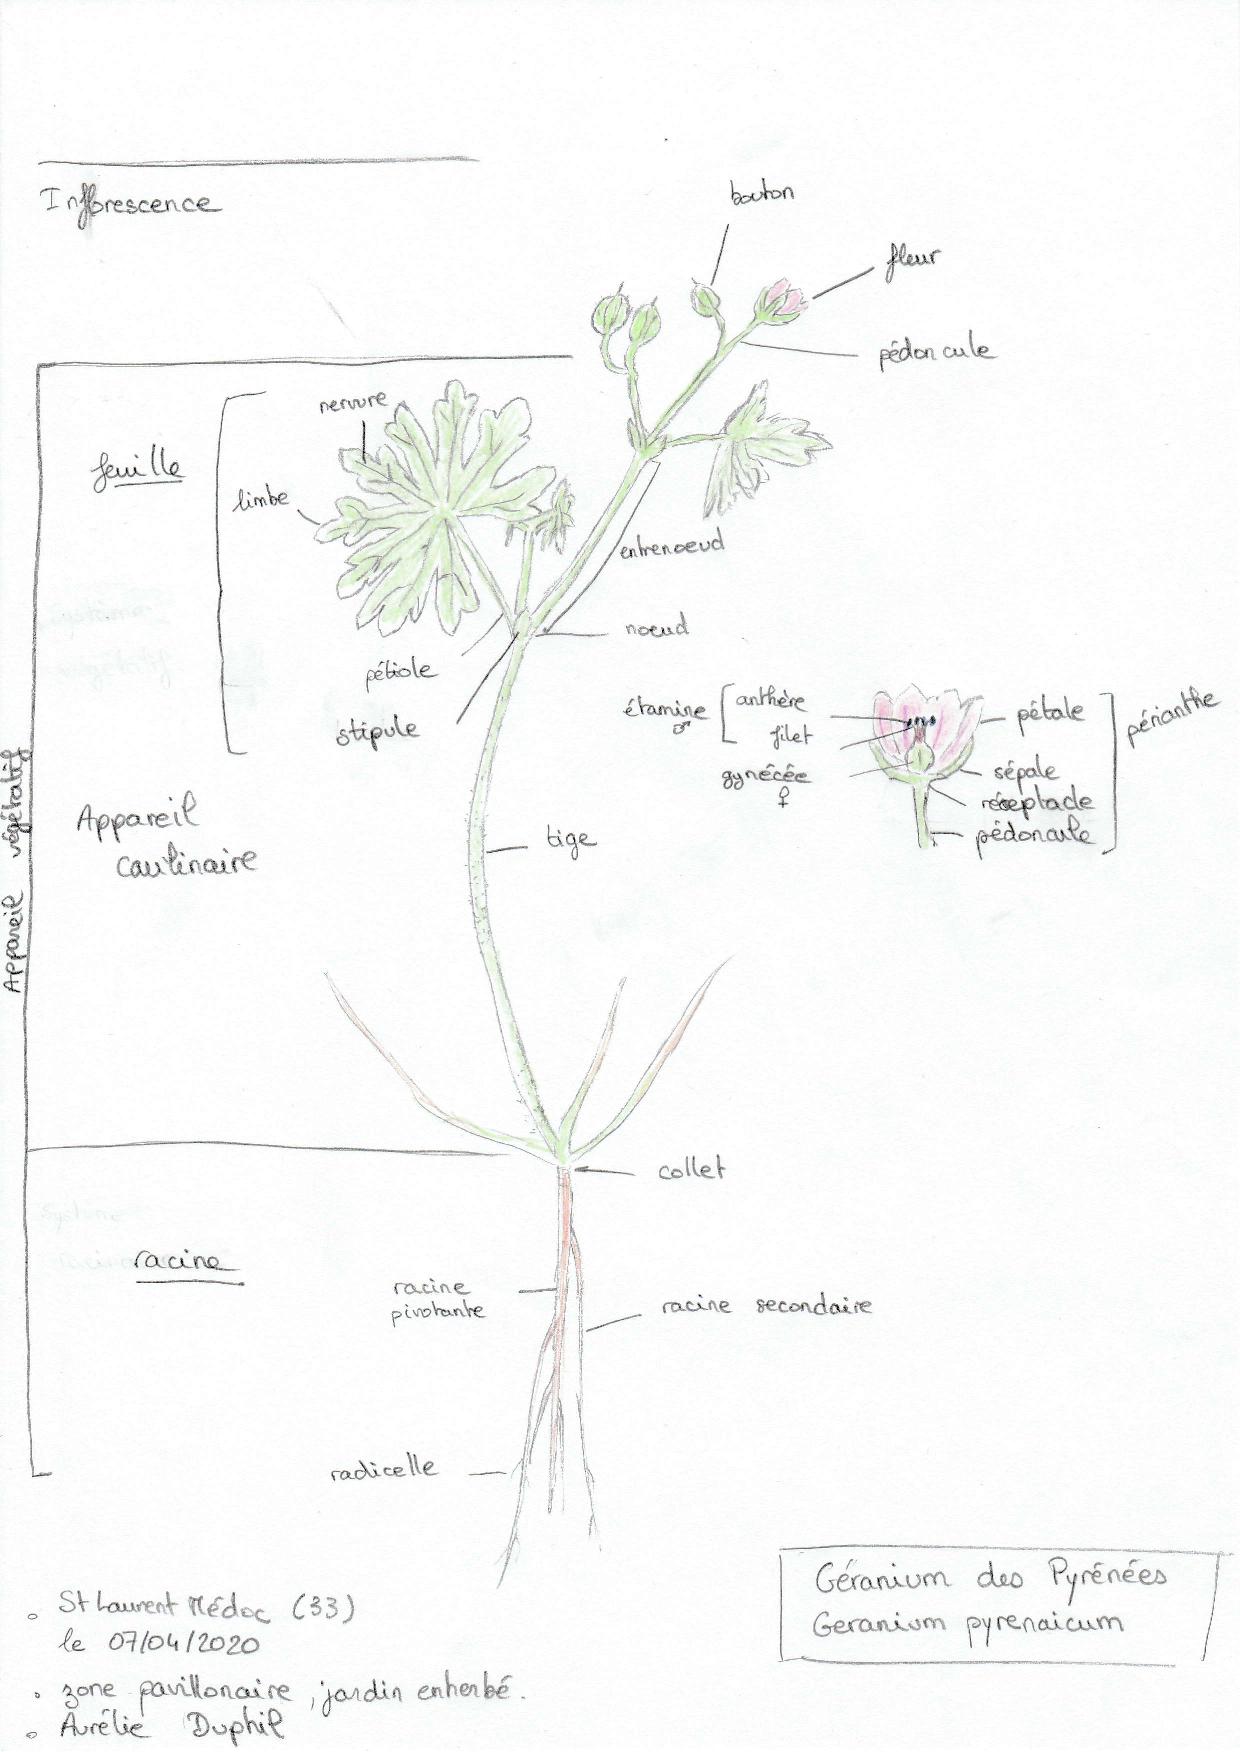 Inflorescence
bouton
fleur
pédoncule
nervure
feuille
limbe
entrenoeud
noeud
pétiole
stipule
étamine ♂
anthère
filet
gynécée
♀
pétale
périanthe
sépale
réceptacle
pédoncule
Appareil végétatif
Appareil
caulinaire
tige
collet
racine
racine
pivotante
racine secondaire
radicelle
Géranium des Pyrénées
Geranium pyrenaicum
St Laurent Médoc (33)
le 07/04/2020
zone pavillonaire, jardin enherbé.
Aurélie Duphil